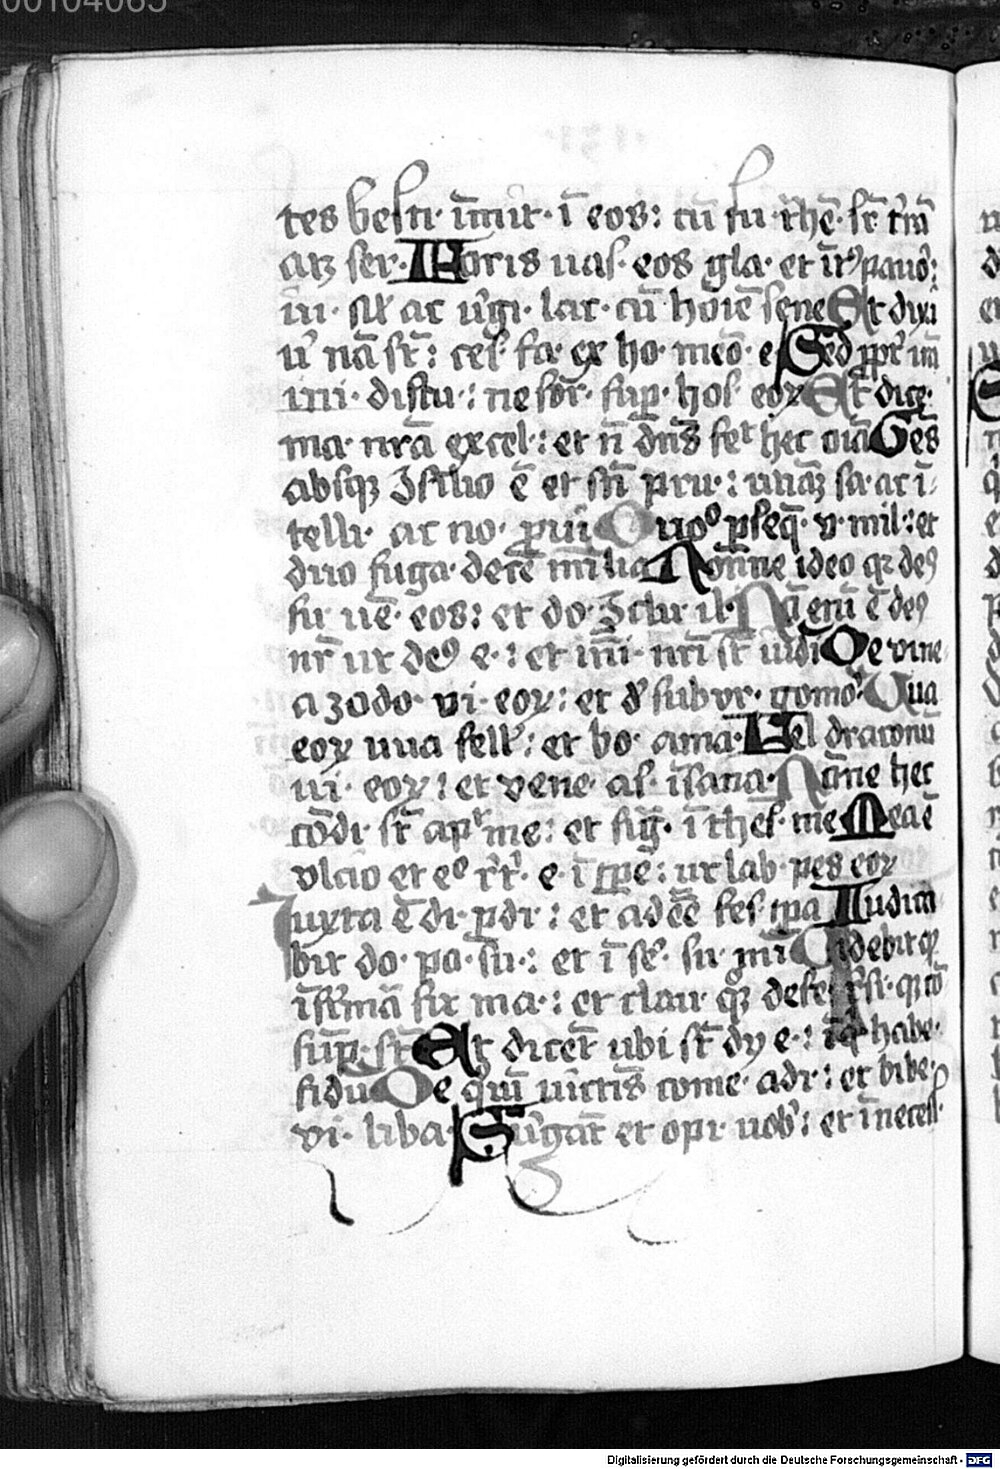 00104065
tes besti· īmit· ī eos: cū fu· t̄hē· sr̄ t̄rā
atq; ser· Foris uas· eos gla· et īt᷑9 pauo᷑:
iu· sl̄ ac u᷑gi· lac· cū hoīe sene Et dixi
u᷑ nā sr̄: ces· fa· ex ho· meō· e Sed ꝓpt᷑ irā
ini· distu·: ne for᷑· sup· hos· eoꝝ Et dice·
ma· nr̄a excel·: et n̄ dn̄s fet hec oīa Gēs
absq; 9silio ē et sn̄ pru·: utinā sa· ac ī
telli· ac no· ꝓui Quo᷑ pseq̄· v· mil·: et
duo fuga· decē milia Nonne ideo qr de9
su· uē· eos: et do· 9clu· il· Nō eni ē de9
nr̄ ut de9 e·: et inī· nr̄i st̄ iudi De vine
a zodo· vi· eoꝝ: et d᷑ subur· gomo᷑· Uua
eoꝝ uua fell᷑: et bo· ama· Fel draconū
ui· eoꝝ: et vene· as· īsana· Nōne hec
cōdi· st̄ apt me: et sig᷑· ī thes· me Mea ē
vlcio et e᷑ r᷑t᷑· e· ī tp̄e: ut lab· pes eoꝝ
Iuxta ē di· pdi·: et adēē fes· tpa Iudica
bit do· po· su·: et ī se᷑· su· mi Uidebit qᷓ
īfirmā sit ma·: et clau· qᷓ defe· rͥsi· qᷓ cō
sūp· st̄ Et dicēt ubi st̄ dy e·: ī qͥ habe·
fidu De quī uictīs come· adi·: et bibe·
vi· liba· Su᷑gāt et opi· uob᷑: et ī necess·
Digitalisierung gefördert durch die Deutsche Forschungsgemeinschaft - DFG